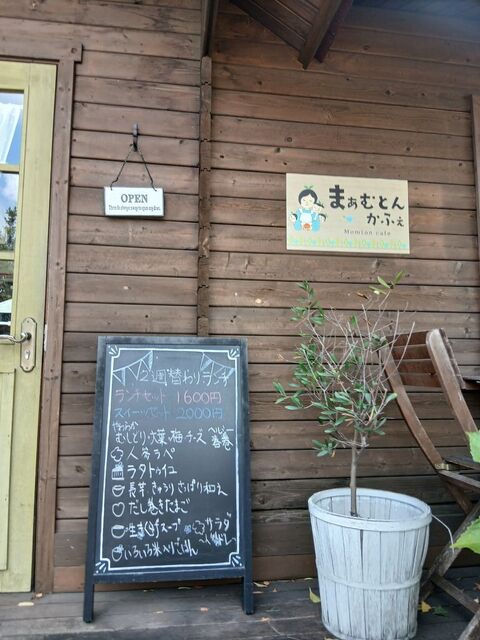 OPEN
まぁむとん
かふぇ
Momton cafe
2週替わりランチ
ランチセット 1600円
スイーツセット 2000円
やわらか
むしどり・大葉・梅・チーズ
春巻
人参ラペ
ラタトゥイユ
長芋・きゅうり さっぱり和え
だし巻きたまご
スープ
サラダ
いろいろ米入りごはん